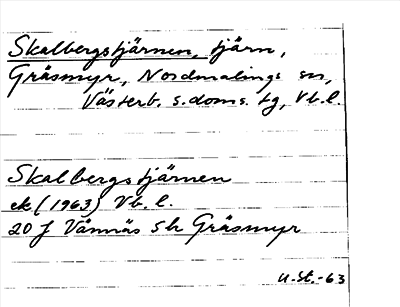 Skalbergstjärnen, tjärn,
Gräsmyr, Nordmalings sn,
Västerb. s. doms. tg, Vb. l.
Skalbergstjärnen
ek (1963) Vb. l.
20 J Vännäs SV Gräsmyr
U.St.-63